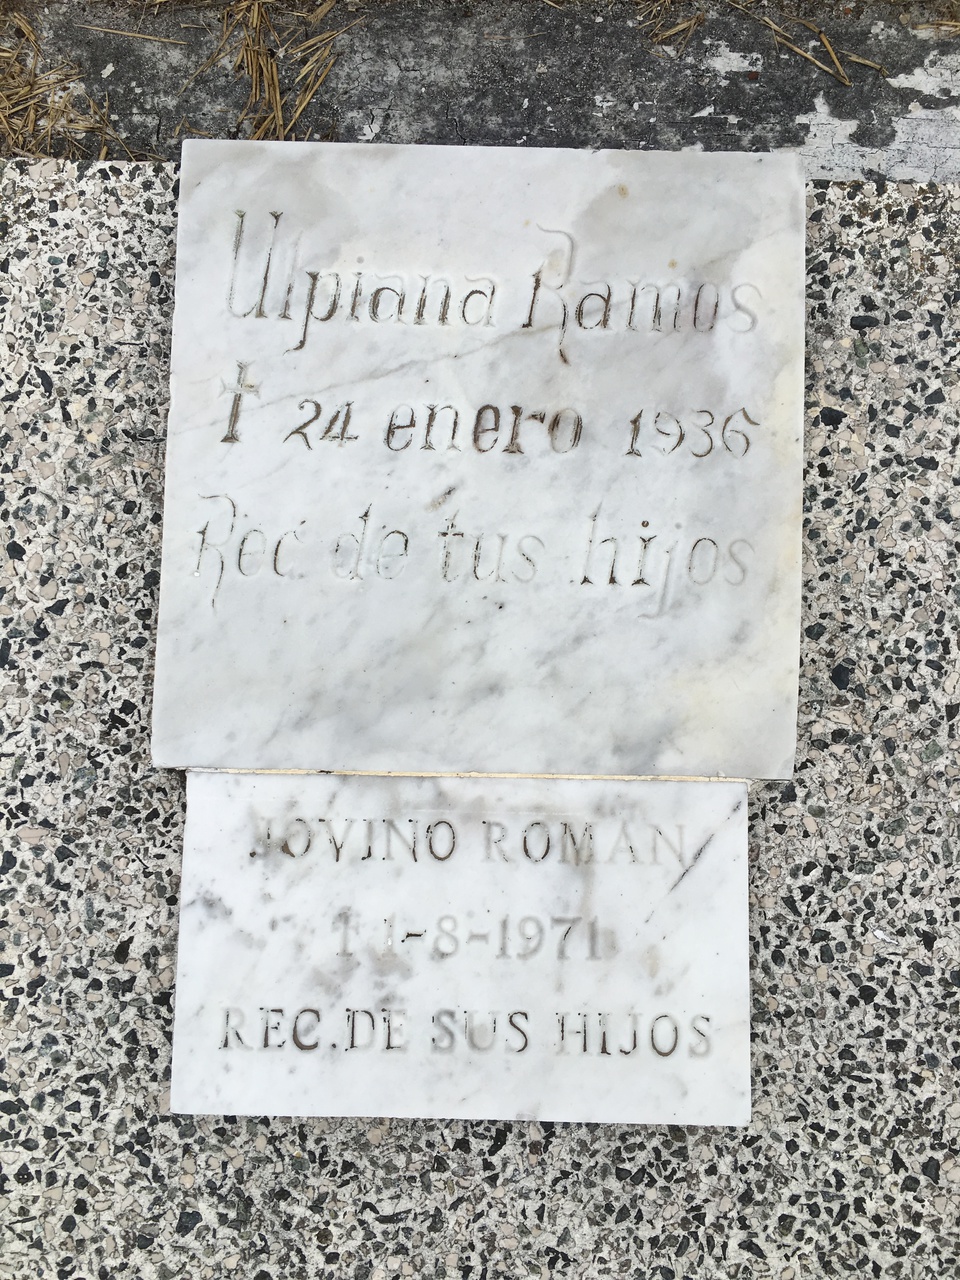 Ulpiana Ramos
† 24 enero 1936
Rec. de tus hijos
JOVINO ROMAN
† 1-8-1971
REC. DE SUS HIJOS